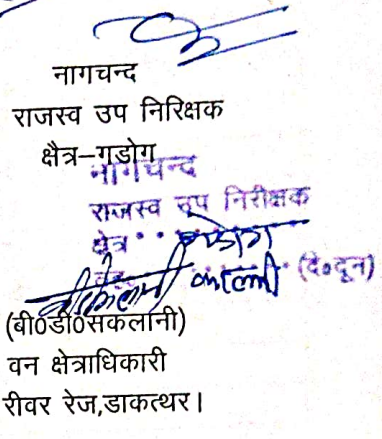 नागचन्द
राजस्व उप निरिक्षक
क्षैत्र–गडोग
नागचन्द
राजस्व उप निरीक्षक
क्षेत्र
(दे०दून)
(बी0डी0सकलानी)
वन क्षेत्राधिकारी
रीवर रेज,डाकत्थर।